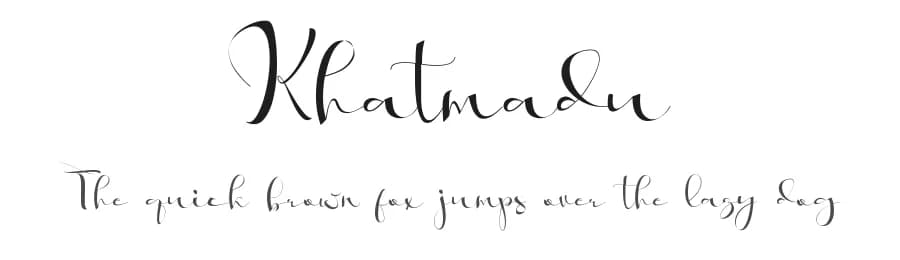 Khatmadu
The quick brown fox jumps over the lazy dog